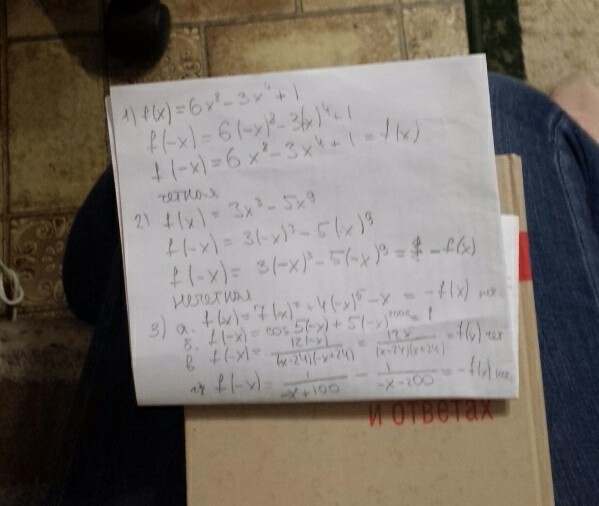 1) f(x) = 6x⁸ - 3x⁴ + 1
f(-x) = 6(-x)⁸ - 3(x)⁴ + 1
f(-x) = 6x⁸ - 3x⁴ + 1 = f(x)
четная
2) f(x) = 3x³ - 5x⁹
f(-x) = 3(-x)³ - 5(-x)⁹
f(-x) = 3(-x)³ - 5(-x)⁹ = - f(x)
нечетная
3) а. f(x) = 7(x) 4(-x)⁵ - x = -f(x) неч.
б. f(-x) = cos5(-x) + 5(-x)
в f(-x) = 12(-x)/(x-24)(-x+24) = 12x/(x-24)(x+24) = f(x) чет
f(-x) = 1/-x+100 - 1/-x-200 = -f(x)
и ответах